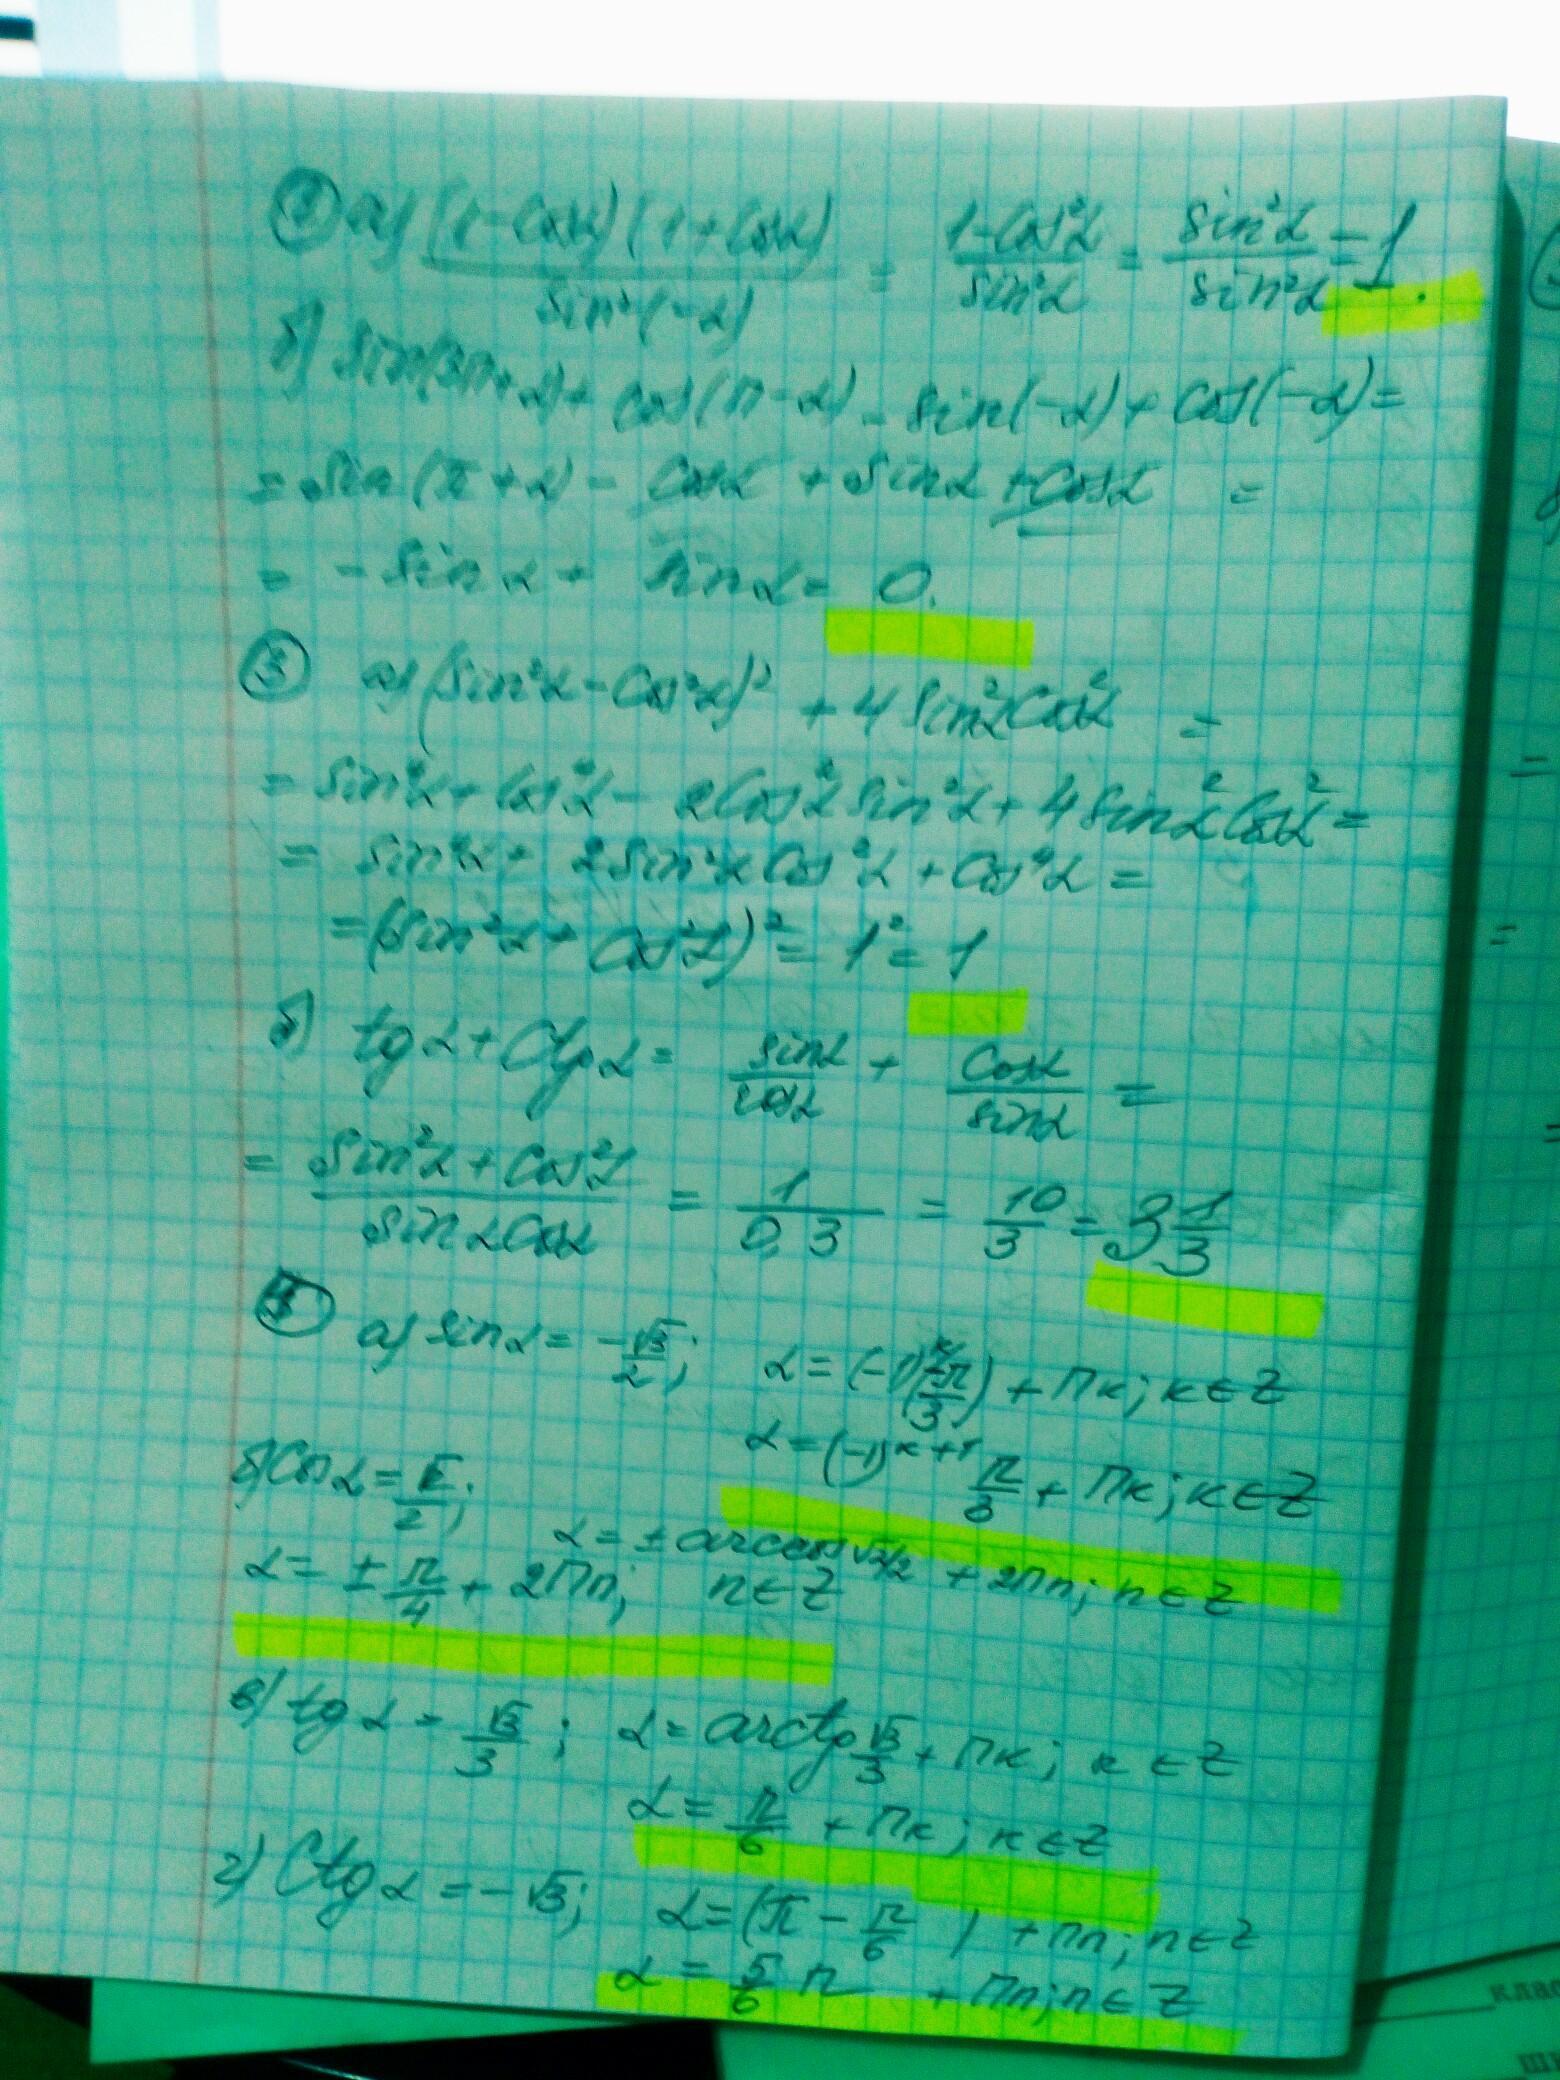 ① а) (1-Cosα)(1+Cosα) / sin²(-α) = 1-Cos²α / sin²α = sin²α / sin²α = 1.
б) sin(3π+α)+ cos(π-α) - sin(-α)+ cos(-α)=
= sin(π+α) - cosα + sinα + cosα =
= -sinα + sinα = 0.
③ а) (sin²α - Cos²α)² + 4 sin²α Cos²α =
= sin⁴α + Cos⁴α - 2Cos²α sin²α + 4 sin²α Cos²α =
= sin⁴α + 2sin²α Cos²α + Cos⁴α =
= (sin²α + Cos²α)² = 1² = 1
б) tgα + Ctgα = sinα / cosα + Cosα / sinα =
= sin²α + Cos²α / sinα Cosα = 1 / 0,3 = 10/3 = 3 1/3
а) sinα = -√3/2; α = (-1)ᵏ(-π/3) + πк; к ∈ Z
α = (-1)ᵏ⁺¹ π/3 + πк; к ∈ Z
б) Cosα = √2/2; α = ± arccos √2/2 + 2πn; n ∈ Z
α = ± π/4 + 2πn; n ∈ Z
в) tgα = √3/3; α = arctg √3/3 + πк; к ∈ Z
α = π/6 + πк; к ∈ Z
г) Ctgα = -√3; α = (π - π/6) + πn; n ∈ Z
α = 5/6 π + πn; n ∈ Z
клас